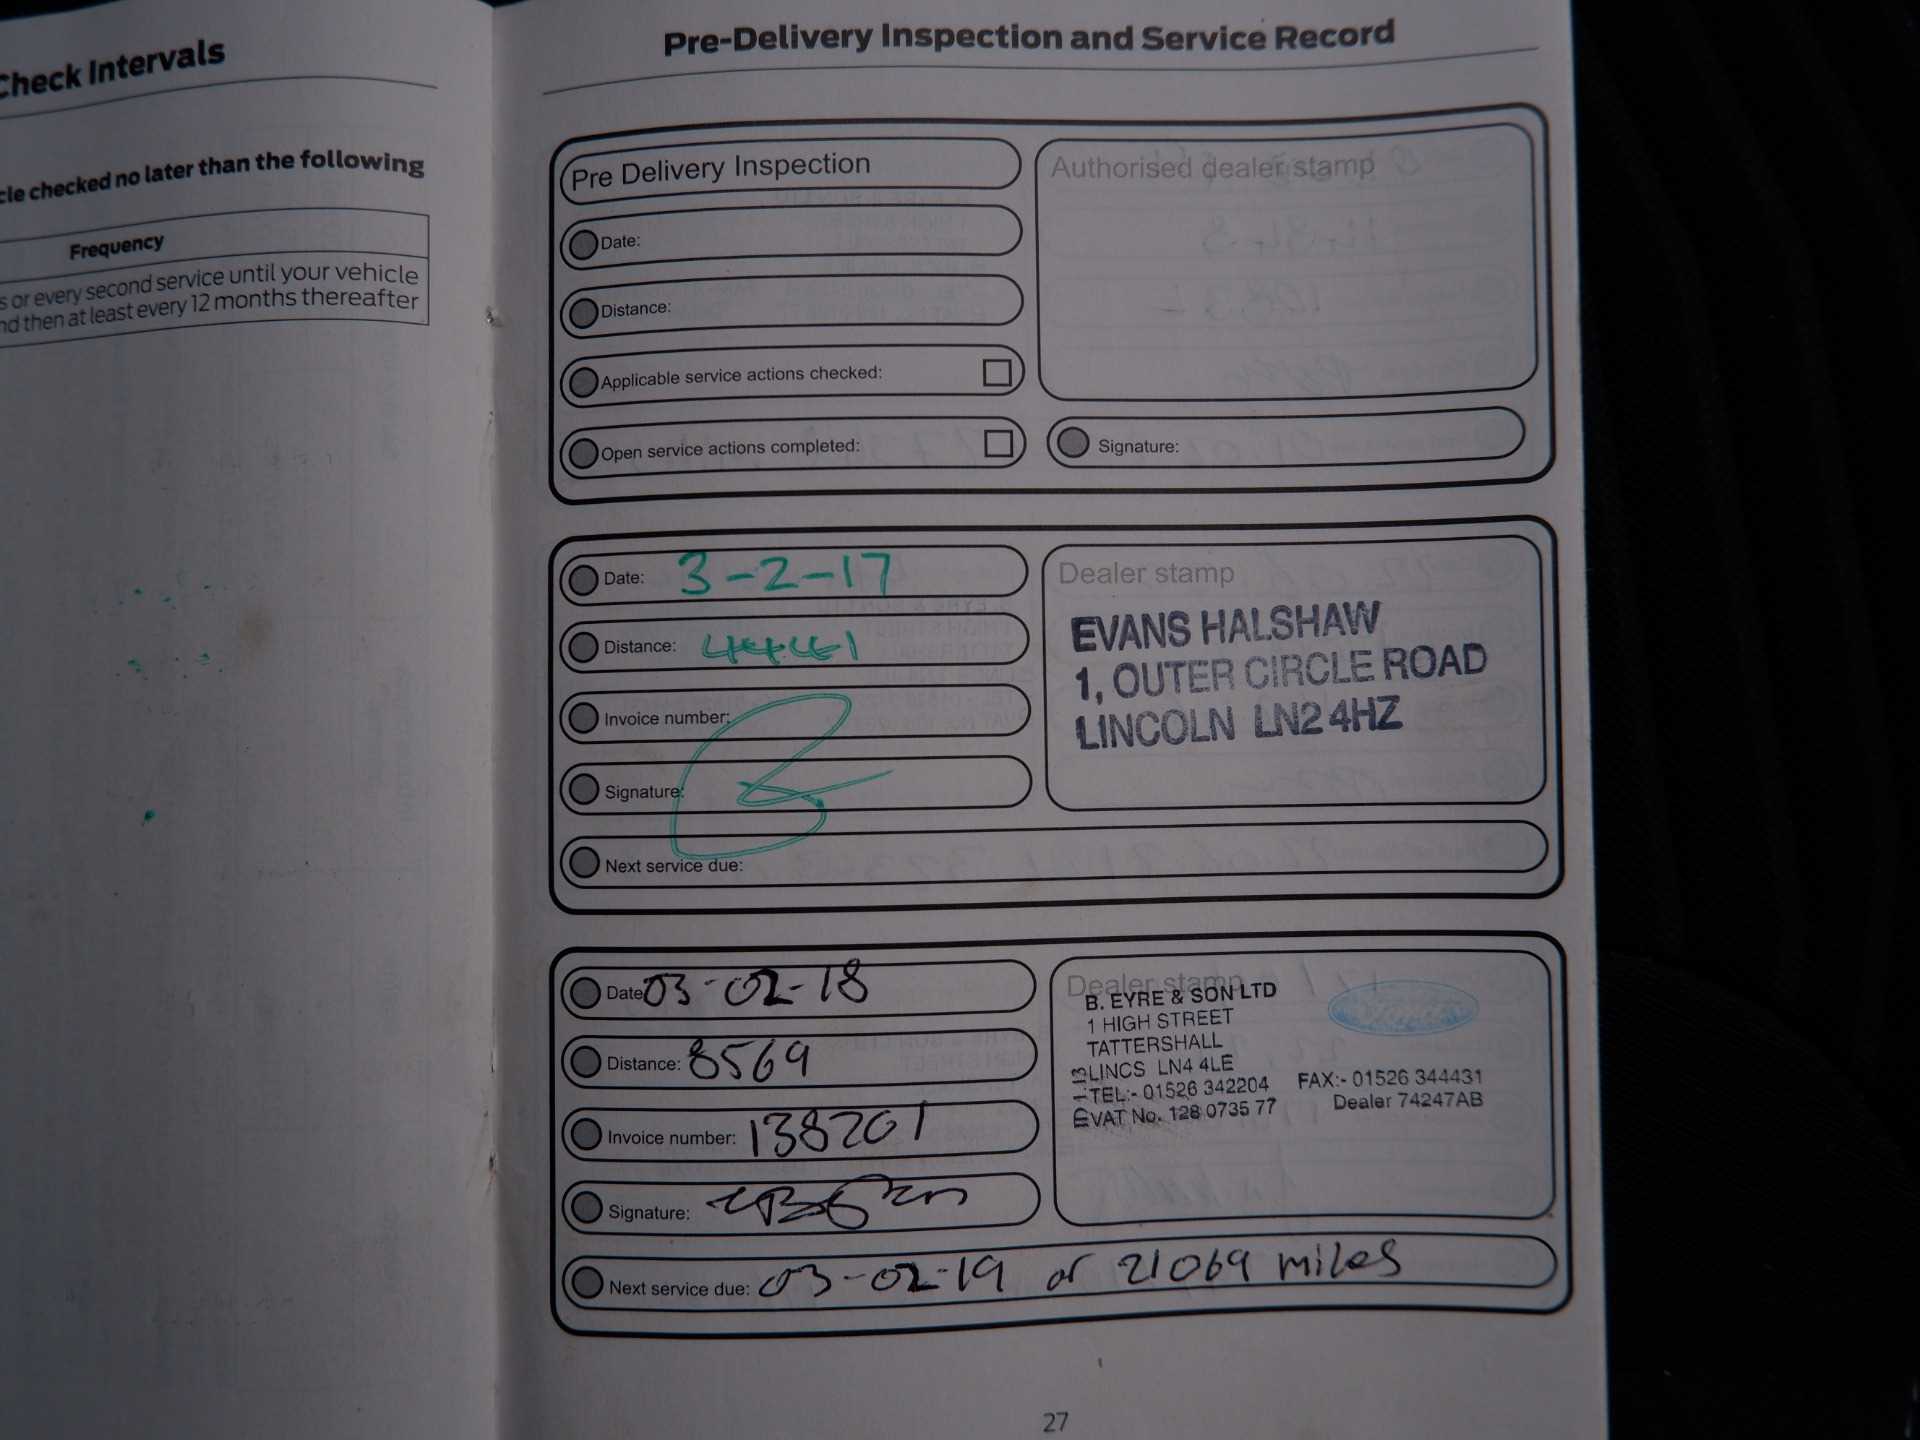 Check Intervals
cle checked no later than the following
Frequency
s or every second service until your vehicle
nd then at least every 12 months thereafter
Pre-Delivery Inspection and Service Record
Pre Delivery Inspection
Date:
Distance:
Applicable service actions checked:
Open service actions completed:
Authorised dealer stamp
Signature:
Date: 3-2-17
Distance:
Invoice number:
Signature:
Next service due:
Dealer stamp
EVANS HALSHAW
1, OUTER CIRCLE ROAD
LINCOLN LN2 4HZ
Date 03-02-18
Distance: 8569
Invoice number: 138201
Signature:
Next service due: 03-02-19 or 21069 miles
Dealer stamp
B. EYRE & SON LTD
1 HIGH STREET
TATTERSHALL
LINCS LN4 4LE
TEL:- 01526 342204 FAX:- 01526 344431
VAT No. 128 0735 77 Dealer 74247AB
Ford
27